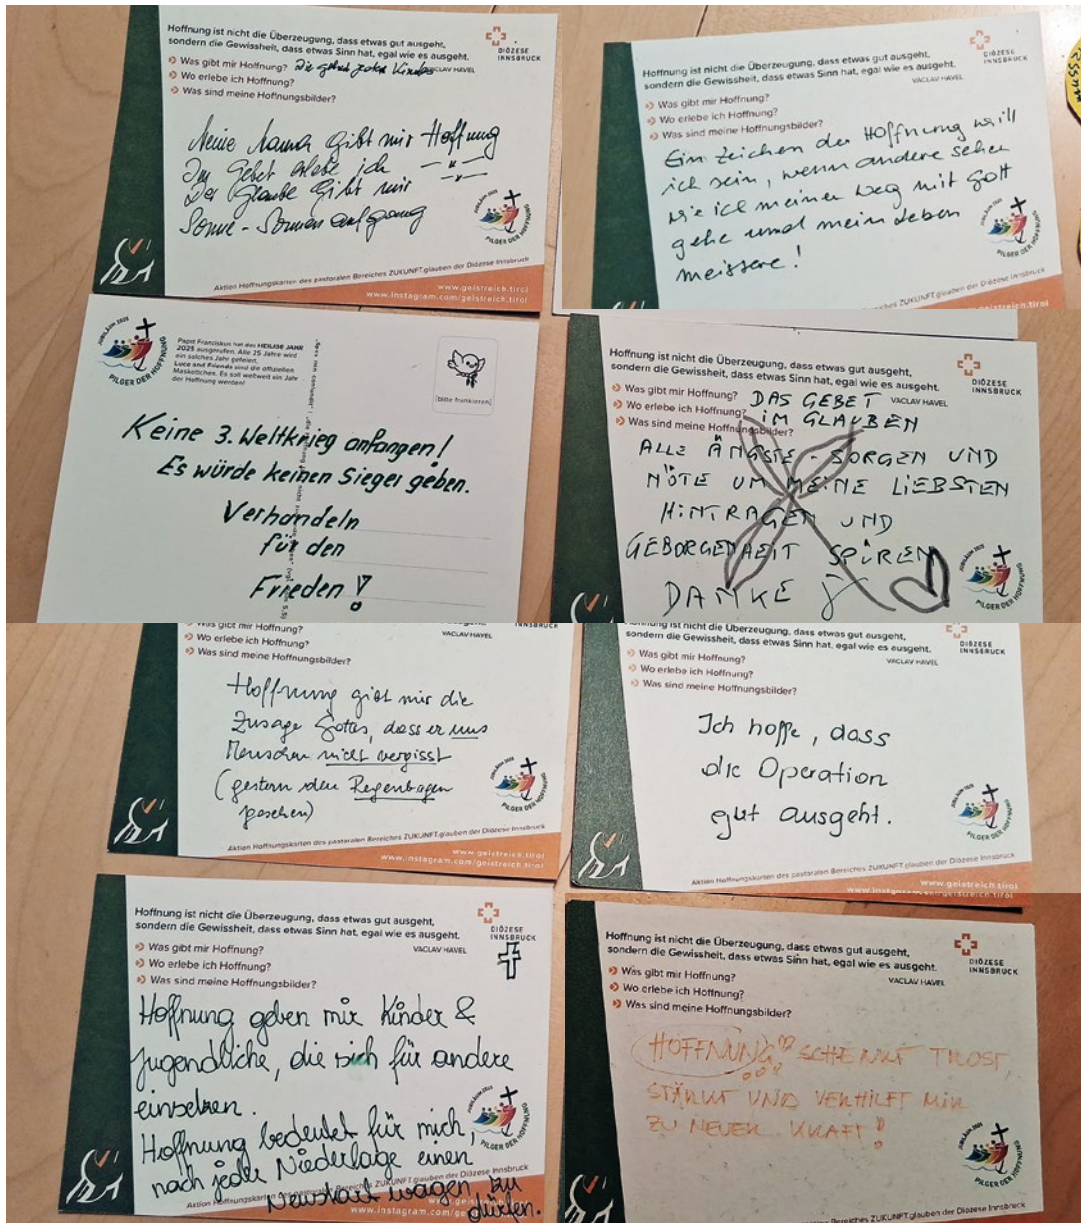 Hoffnung ist nicht die Überzeugung, dass etwas gut ausgeht,
sondern die Gewissheit, dass etwas Sinn hat, egal wie es ausgeht.
VACLAV HAVEL
DIÖZESE
INNSBRUCK
Was gibt mir Hoffnung? Die jedes Kindes
Wo erlebe ich Hoffnung?
Was sind meine Hoffnungsbilder?
Meine Mama gibt mir Hoffnung
Im Gebet erlebe ich —"—
Der Glaube gibt mir —"—
Sonne - Sonnenaufgang
JUBILÄUM 2025
PILGER DER HOFFNUNG
Aktion Hoffnungskarten des pastoralen Bereiches ZUKUNFT.glauben der Diözese Innsbruck
www.geistreich.tirol
www.instagram.com/geistreich.tirol
Hoffnung ist nicht die Überzeugung, dass etwas gut ausgeht,
sondern die Gewissheit, dass etwas Sinn hat, egal wie es ausgeht.
VACLAV HAVEL
DIÖZESE
INNSBRUCK
Was gibt mir Hoffnung?
Wo erlebe ich Hoffnung?
Was sind meine Hoffnungsbilder?
Ein Zeichen der Hoffnung will
ich sein, wenn andere sehen
wie ich meinen Weg mit Gott
gehe und mein Leben
meistere!
JUBILÄUM 2025
PILGER DER HOFFNUNG
ZUKUNFT.glauben der Diözese Innsbruck
geistreich.tirol
JUBILÄUM 2025
PILGER DER HOFFNUNG
Papst Franziskus hat das HEILIGE JAHR
2025 ausgerufen. Alle 25 Jahre wird
ein solches Jahr gefeiert.
Luce and Friends sind die offiziellen
Maskottchen. Es soll weltweit ein Jahr
der Hoffnung werden!
[bitte frankieren]
Keine 3. Weltkrieg anfangen!
Es würde keinen Sieger geben.
Verhandeln
für den
Frieden!
Hoffnung ist nicht die Überzeugung, dass etwas gut ausgeht,
sondern die Gewissheit, dass etwas Sinn hat, egal wie es ausgeht.
VACLAV HAVEL
DIÖZESE
INNSBRUCK
Was gibt mir Hoffnung? DAS GEBET
Wo erlebe ich Hoffnung? IM GLAUBEN
Was sind meine Hoffnungsbilder?
ALLE ÄNGSTE - SORGEN UND
NÖTE UM MEINE LIEBSTEN
HINTRAGEN UND
GEBORGENHEIT SPÜREN
DANKE
JUBILÄUM 2025
PILGER DER HOFFNUNG
Was gibt mir Hoffnung?
VACLAV HAVEL
INNSBRUCK
Wo erlebe ich Hoffnung?
Was sind meine Hoffnungsbilder?
Hoffnung gibt mir die
Zusage Gottes, dass er uns
Menschen nicht vergisst
(gestern den Regenbogen
gesehen)
JUBILÄUM 2025
PILGER DER HOFFNUNG
Aktion Hoffnungskarten des pastoralen Bereiches ZUKUNFT.glauben der Diözese Innsbruck
www.geistreich.tirol
www.instagram.com/geistreich.tirol
Hoffnung ist nicht die Überzeugung, dass etwas gut ausgeht,
sondern die Gewissheit, dass etwas Sinn hat, egal wie es ausgeht.
VACLAV HAVEL
DIÖZESE
INNSBRUCK
Was gibt mir Hoffnung?
Wo erlebe ich Hoffnung?
Was sind meine Hoffnungsbilder?
Ich hoffe, dass
die Operation
gut ausgeht.
JUBILÄUM 2025
PILGER DER HOFFNUNG
Aktion Hoffnungskarten des pastoralen Bereiches ZUKUNFT.glauben der Diözese Innsbruck
www.geistreich.tirol
www.instagram.com/geistreich.tirol
Hoffnung ist nicht die Überzeugung, dass etwas gut ausgeht,
sondern die Gewissheit, dass etwas Sinn hat, egal wie es ausgeht.
VACLAV HAVEL
DIÖZESE
INNSBRUCK
Was gibt mir Hoffnung?
Wo erlebe ich Hoffnung?
Was sind meine Hoffnungsbilder?
Hoffnung geben mir Kinder &
Jugendliche, die sich für andere
einsetzen.
Hoffnung bedeutet für mich,
nach jeder Niederlage einen
Neustart wagen zu
dürfen.
JUBILÄUM 2025
PILGER DER HOFFNUNG
Aktion Hoffnungskarten des pastoralen Bereiches ZUKUNFT.glauben der Diözese Innsbruck
www.instagram.com/geistreich.tirol
Hoffnung ist nicht die Überzeugung, dass etwas gut ausgeht,
sondern die Gewissheit, dass etwas Sinn hat, egal wie es ausgeht.
VACLAV HAVEL
DIÖZESE
INNSBRUCK
Was gibt mir Hoffnung?
Wo erlebe ich Hoffnung?
Was sind meine Hoffnungsbilder?
HOFFNUNG SCHENKT TROST,
STÄRKT UND VERHILFT MIR
ZU NEUER KRAFT!
JUBILÄUM 2025
PILGER DER HOFFNUNG
Bereiches ZUKUNFT.glauben der Diözese Innsbruck